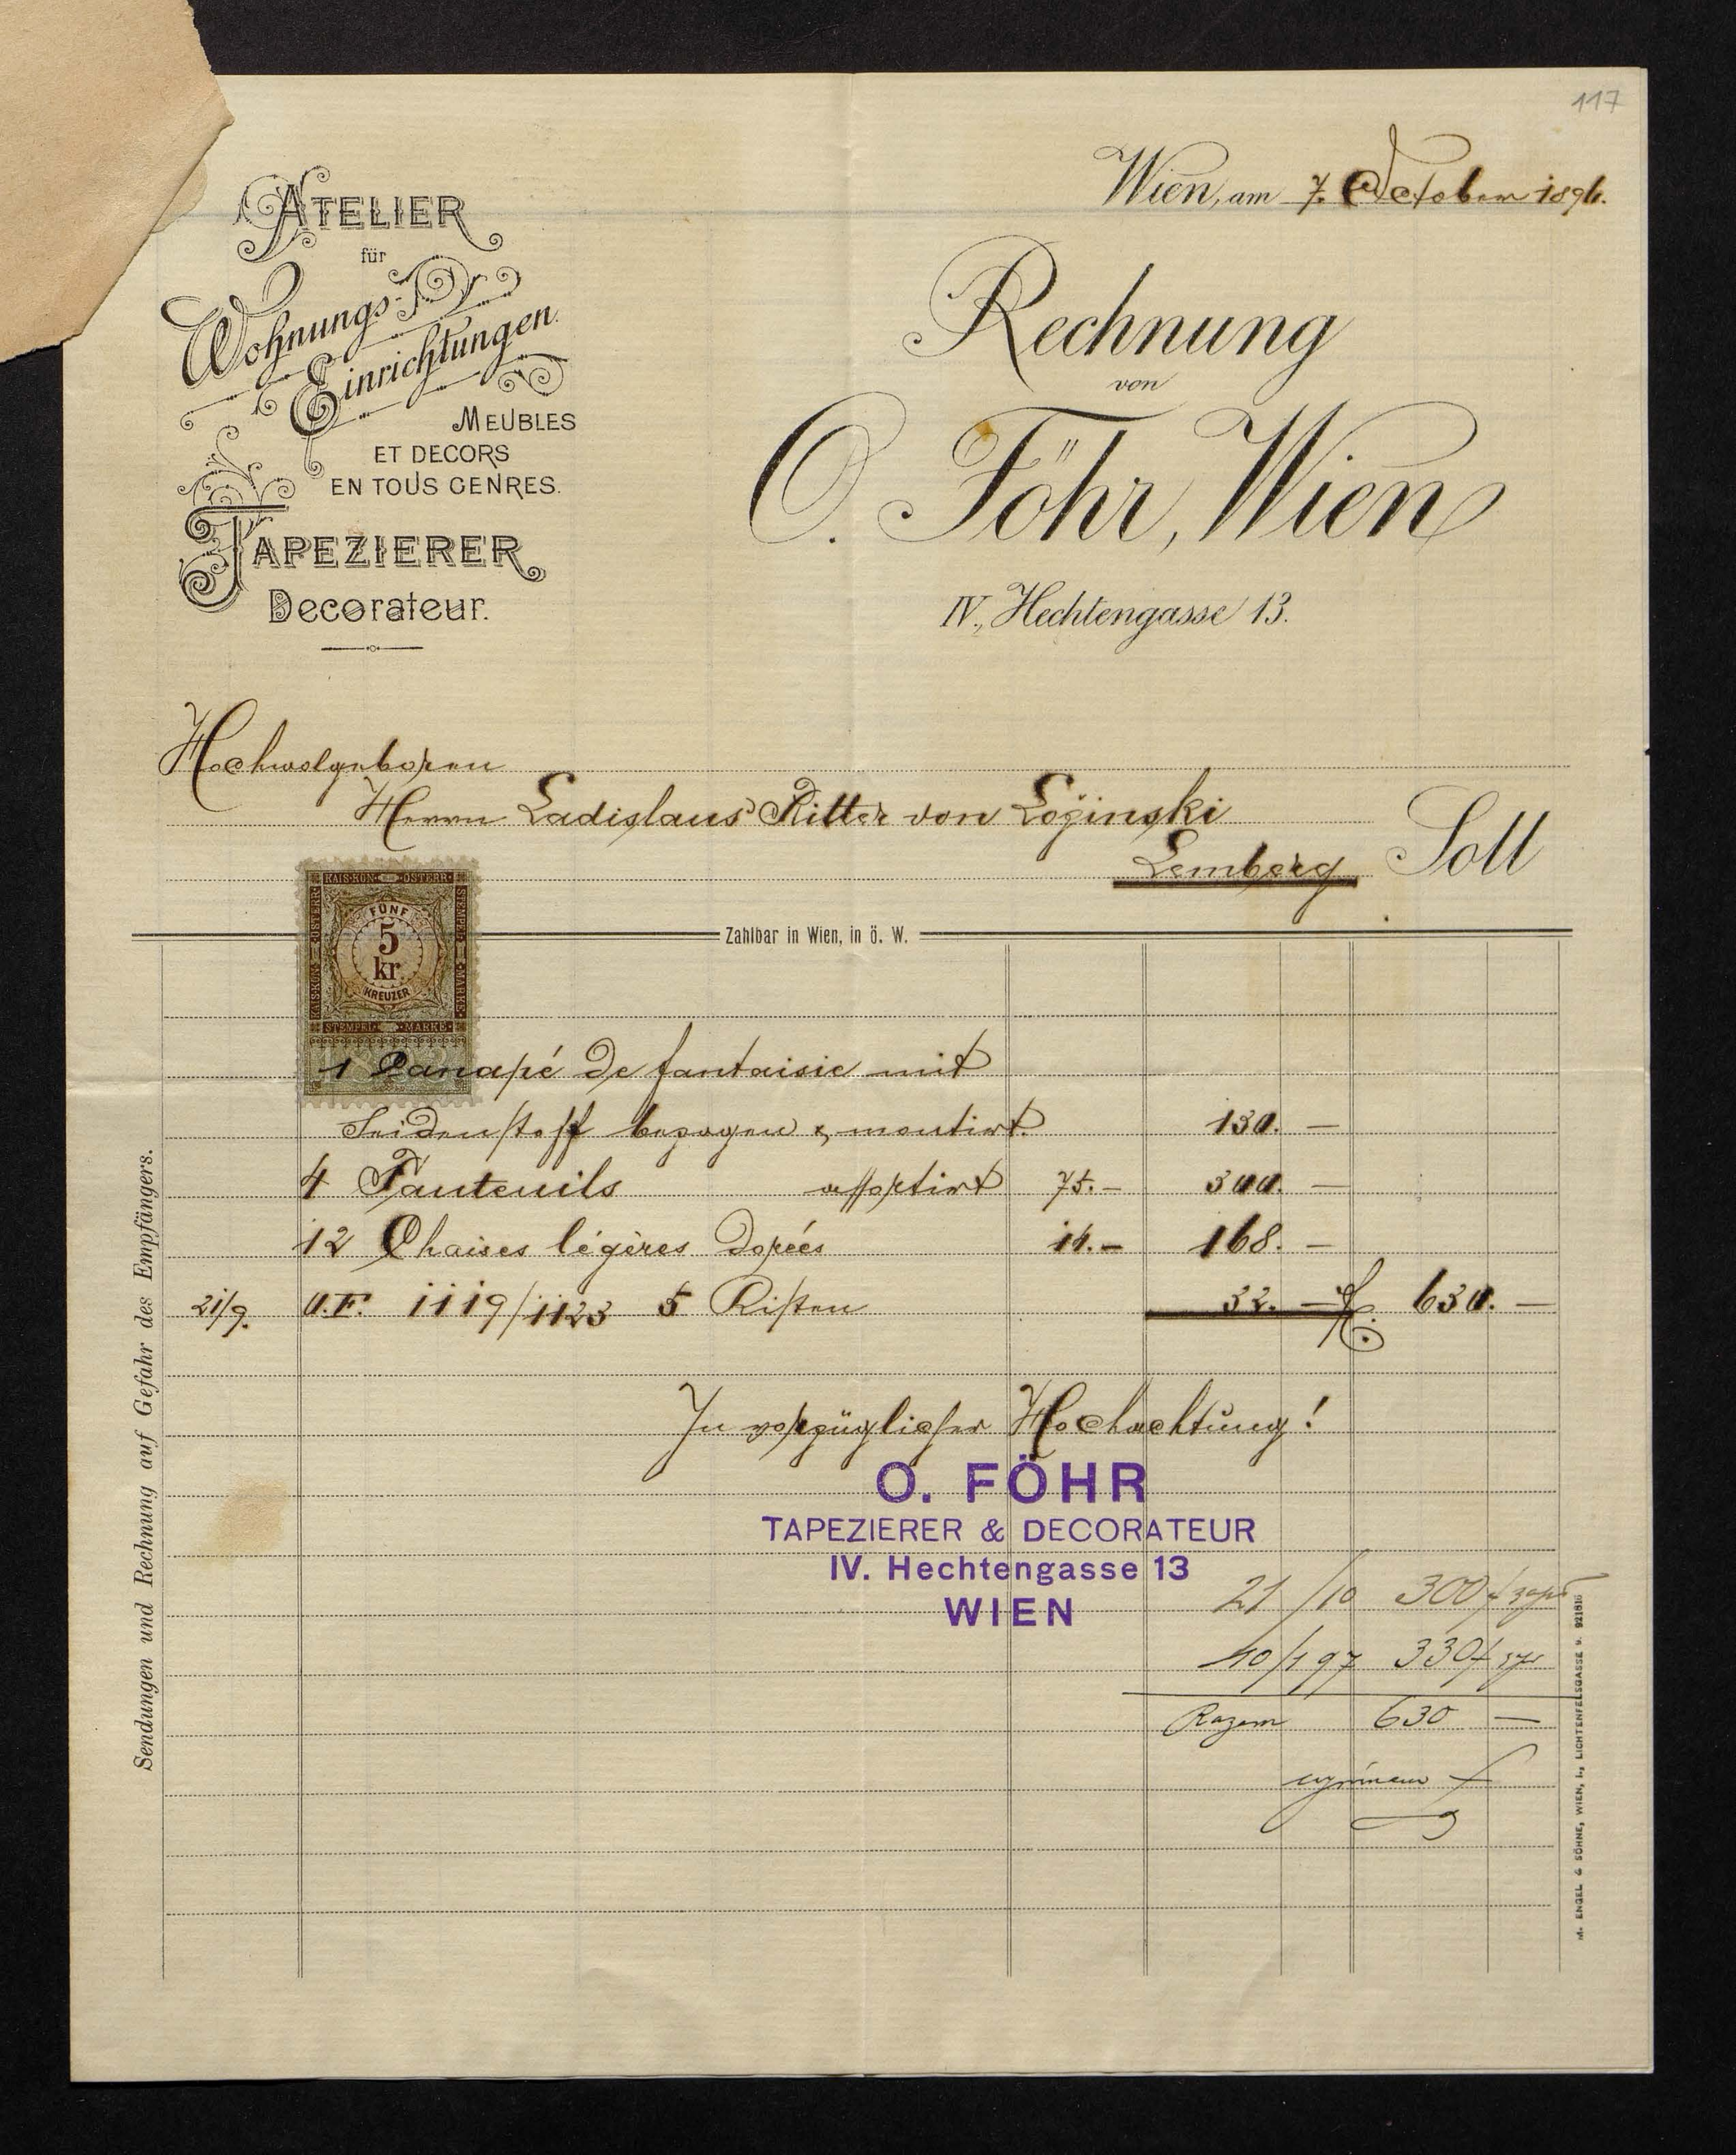 117
ATELIER
für
Wohnungs-
Einrichtungen.
MEUBLES
ET DECORS
EN TOUS GENRES.
TAPEZIERER
Decorateur.
Wien, am 7. October 1896.
Rechnung
von
O. Föhr, Wien
IV., Hechtengasse 13.
Hochwolgeboren
Herrn Ladislaus Ritter von Łoziński
Lemberg
Soll
Zahlbar in Wien, in ö. W.
KAIS·KÖN· ÖSTERR·
STEMPEL MARKE
FÜNF
5
kr
KREUZER
1 Canapé de fantaisie mit
Seidenstoff bezogen & montirt. 130. —
4 Fauteuils assortirt 75.— 300. —
12 Chaises légères dorées 14.— 168. —
21/9. O.F. 1119/1123 5 Kisten 32. — fl. 630. —
In vorzüglicher Hochachtung!
O. FÖHR
TAPEZIERER & DECORATEUR
IV. Hechtengasse 13
WIEN
21/10 300 f
10/1 97 330 f
Razem 630 —
Sendungen und Rechnung auf Gefahr des Empfängers.
M. ENGEL & SÖHNE, WIEN, I., LICHTENFELSGASSE 9. 921816